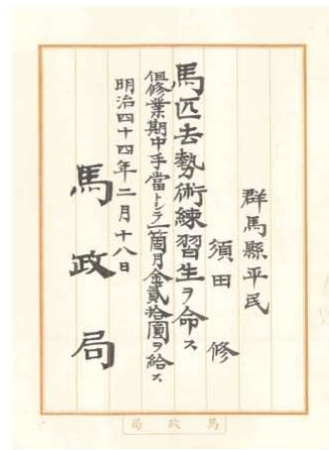 群馬縣平民
須田 修
馬匹去勢術練習生ヲ命ス
但修業期中手當トシテ一箇月金貳拾圓ヲ給ス
明治四十四年二月十八日
馬政局
馬政局